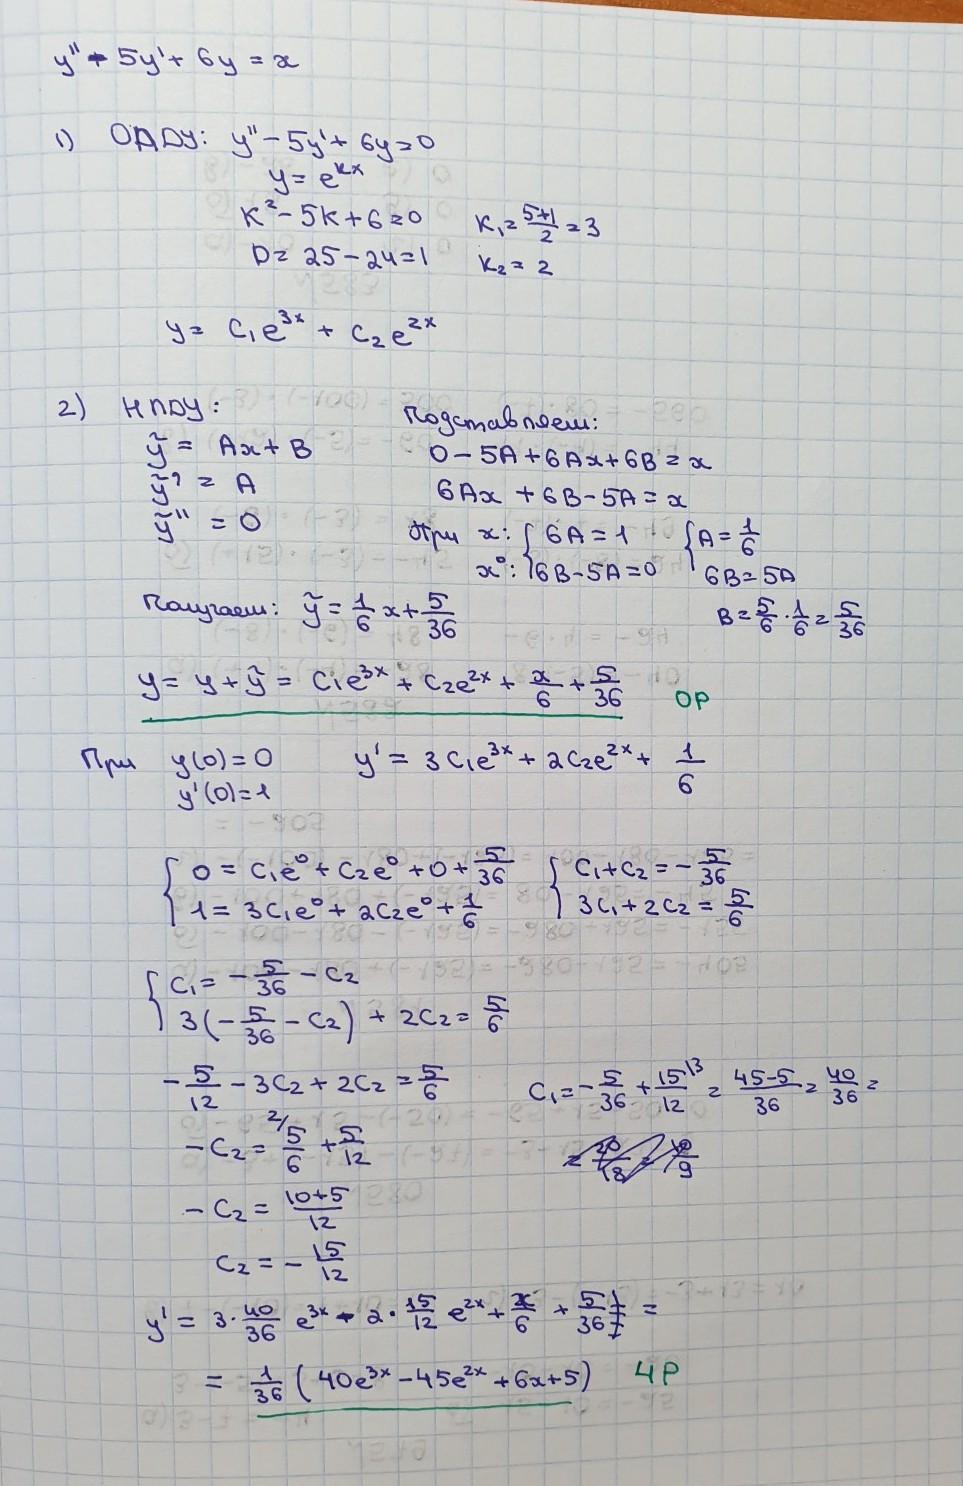 y'' - 5y' + 6y = x
1) ОАДУ: y'' - 5y' + 6y = 0
y = e^{kx}
k² - 5k + 6 = 0 k₁ = \frac{5+1}{2} = 3
D = 25 - 24 = 1 k₂ = 2
y = C₁e^{3x} + C₂e^{2x}
2) НПДУ: Подставляем:
ỹ = Ax + B 0 - 5A + 6Ax + 6B = x
ỹ' = A 6Ax + 6B - 5A = x
ỹ'' = 0 При x: { 6A = 1 { A = \frac{1}{6}
x⁰: 6B - 5A = 0 6B = 5A
Получаем: ỹ = \frac{1}{6} x + \frac{5}{36} B = \frac{5}{6} · \frac{1}{6} = \frac{5}{36}
y = y + ỹ = C₁e^{3x} + C₂e^{2x} + \frac{x}{6} + \frac{5}{36} ОР
При y(0) = 0 y' = 3C₁e^{3x} + 2C₂e^{2x} + \frac{1}{6}
y'(0) = 1
{ 0 = C₁e⁰ + C₂e⁰ + 0 + \frac{5}{36} { C₁ + C₂ = -\frac{5}{36}
1 = 3C₁e⁰ + 2C₂e⁰ + \frac{1}{6} 3C₁ + 2C₂ = \frac{5}{6}
{ C₁ = -\frac{5}{36} - C₂
3(-\frac{5}{36} - C₂) + 2C₂ = \frac{5}{6}
-\frac{5}{12} - 3C₂ + 2C₂ = \frac{5}{6} C₁ = -\frac{5}{36} + \frac{15}{12}^{\3} = \frac{45-5}{36} = \frac{40}{36} =
-C₂ = ^{2/}\frac{5}{6} + \frac{5}{12}
-C₂ = \frac{10+5}{12}
C₂ = -\frac{15}{12}
y' = 3·\frac{40}{36} e^{3x} - 2·\frac{15}{12} e^{2x} + \frac{x}{6} + \frac{5}{36} =
= \frac{1}{36} (40e^{3x} - 45e^{2x} + 6x + 5) ЧР